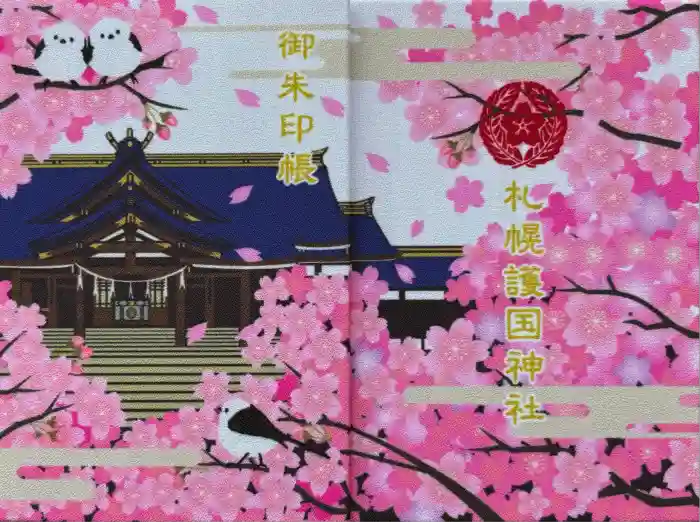 御朱印帳
札幌護国神社